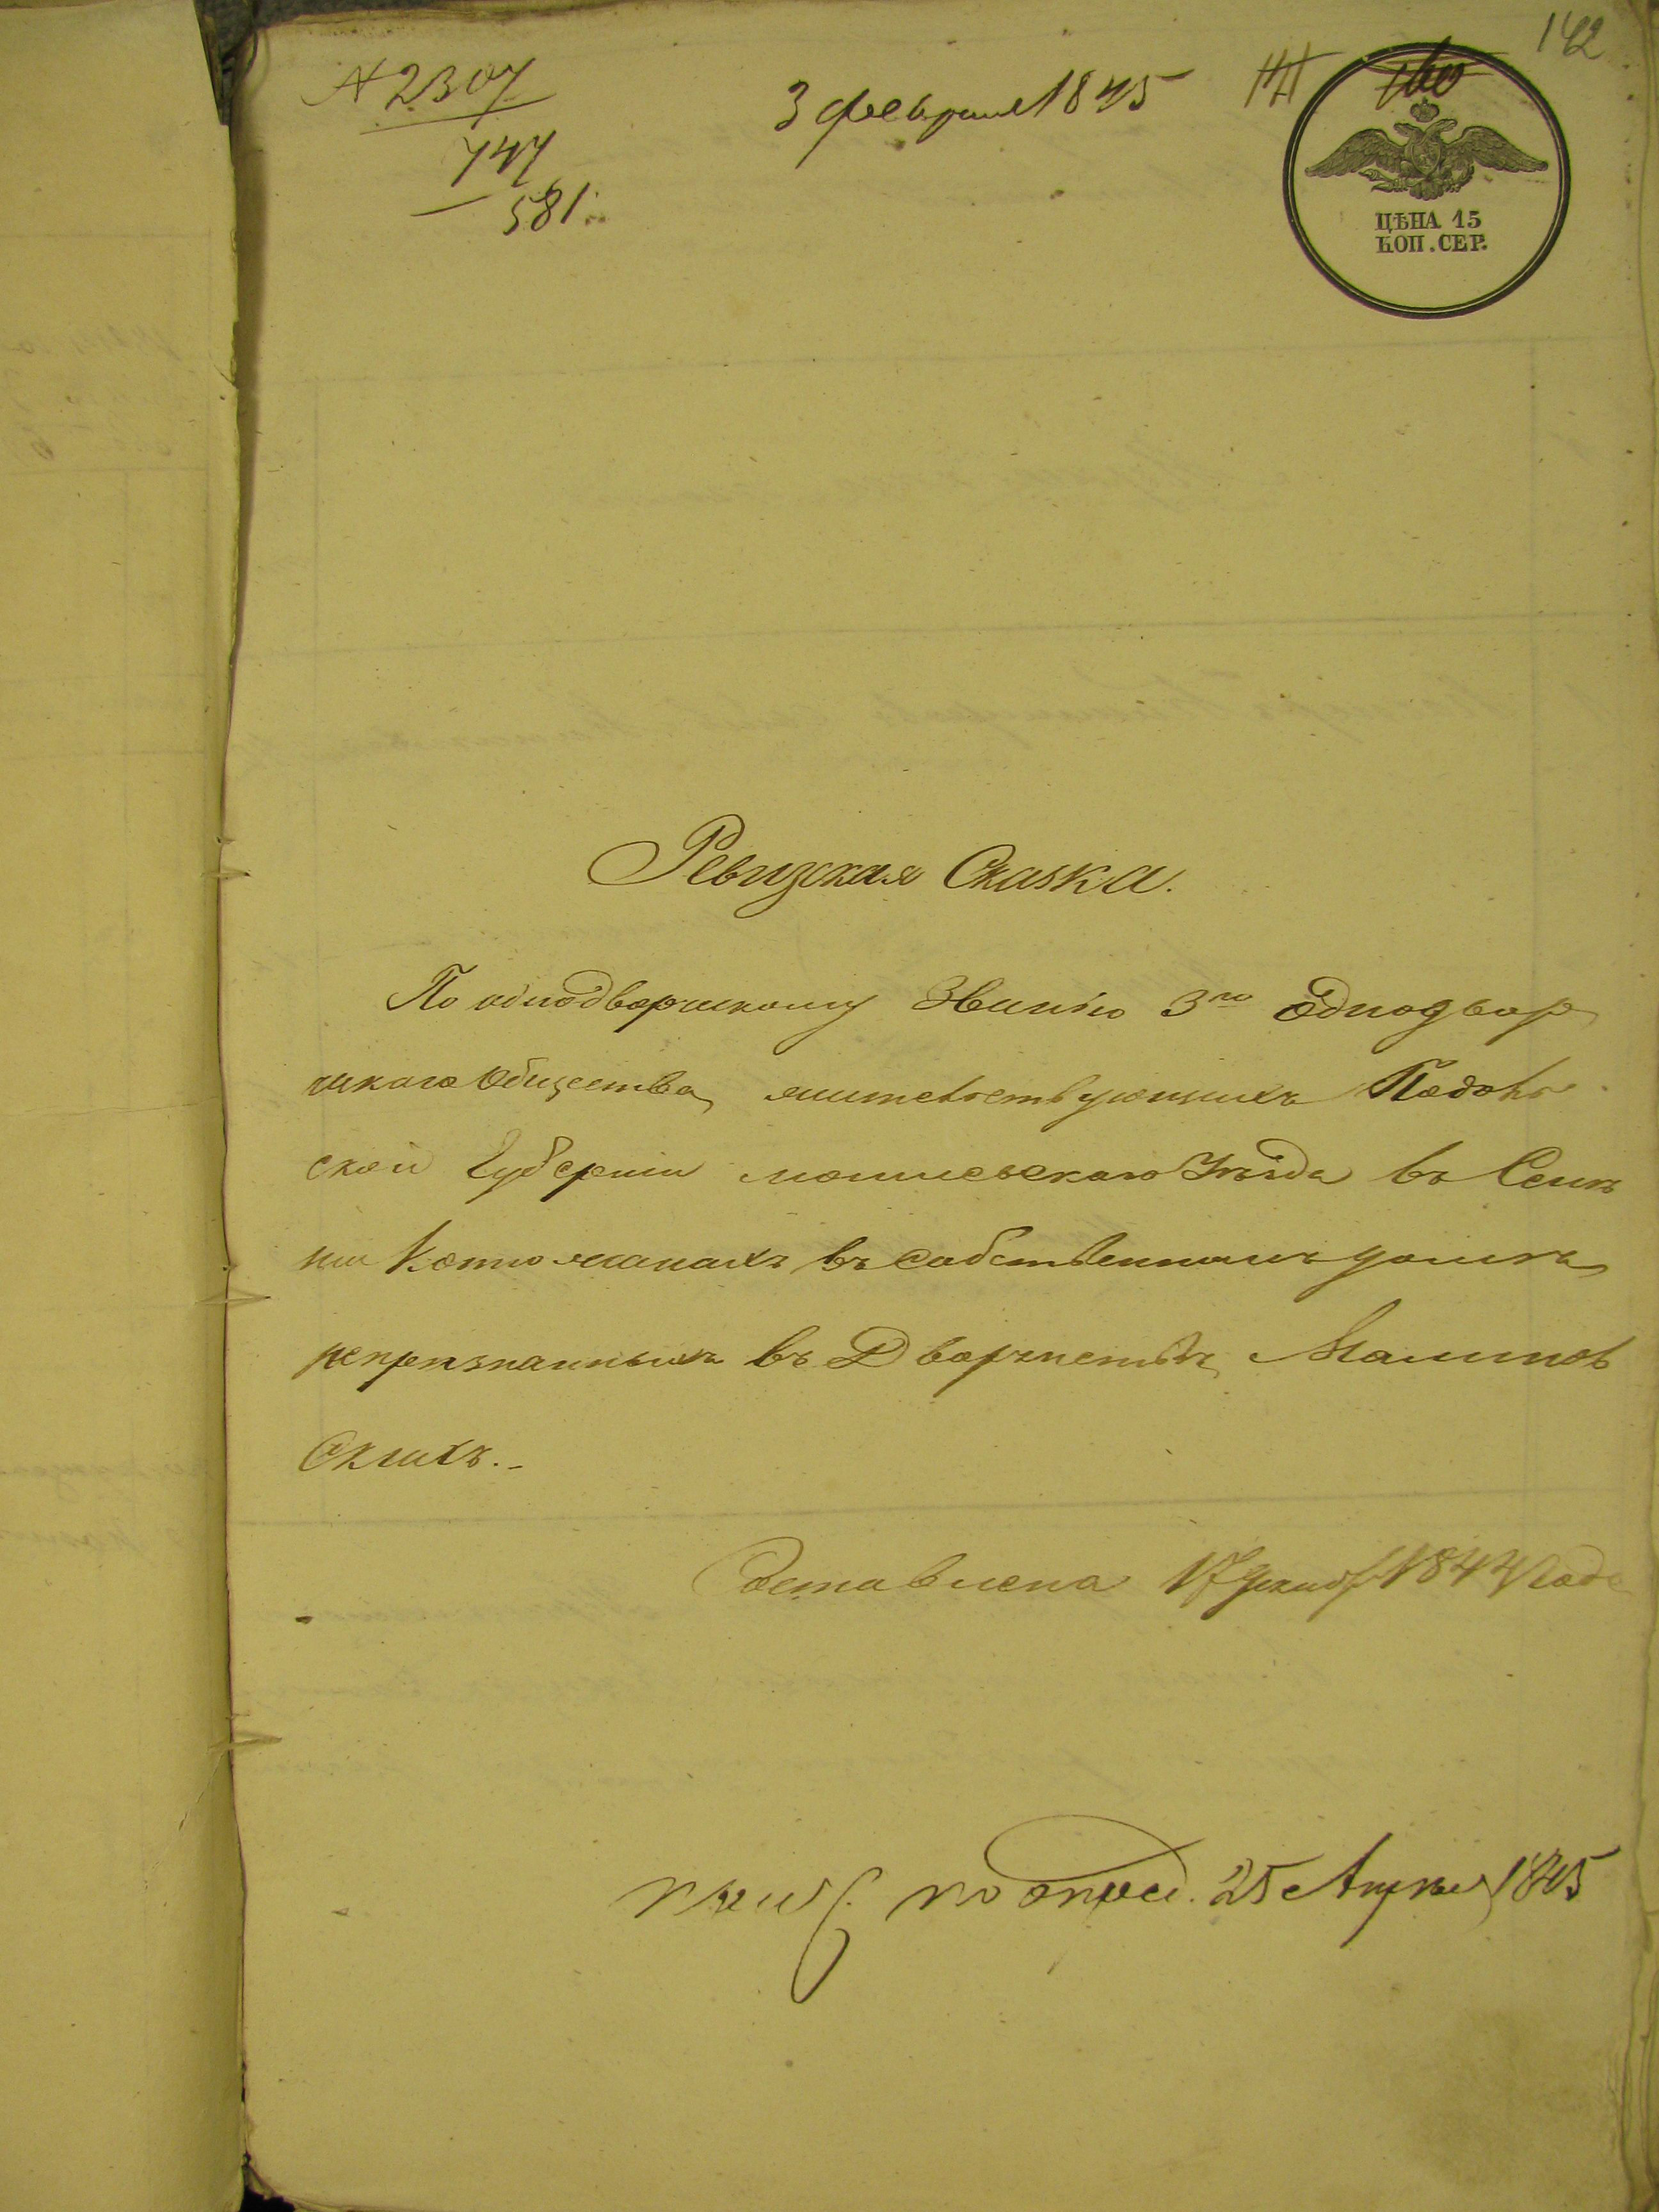 № 2307
747
581.
3 февраля 1845
141
142
ЦѢНА 15
КОП. СЕР.
Ревизская Сказка.
По однодворческому Званію 3го Однодвор
ческаго Общества, жительствующихъ Подоль
ской Губерніи могилевскаго Уѣзда въ Селе
ніи Котюжанахъ въ собственномъ домѣ,
непризнанныхъ въ Дворянствѣ, Малинов
Скихъ.-
Составлена 17 декаб 1844 Года
25 Апреля 1845